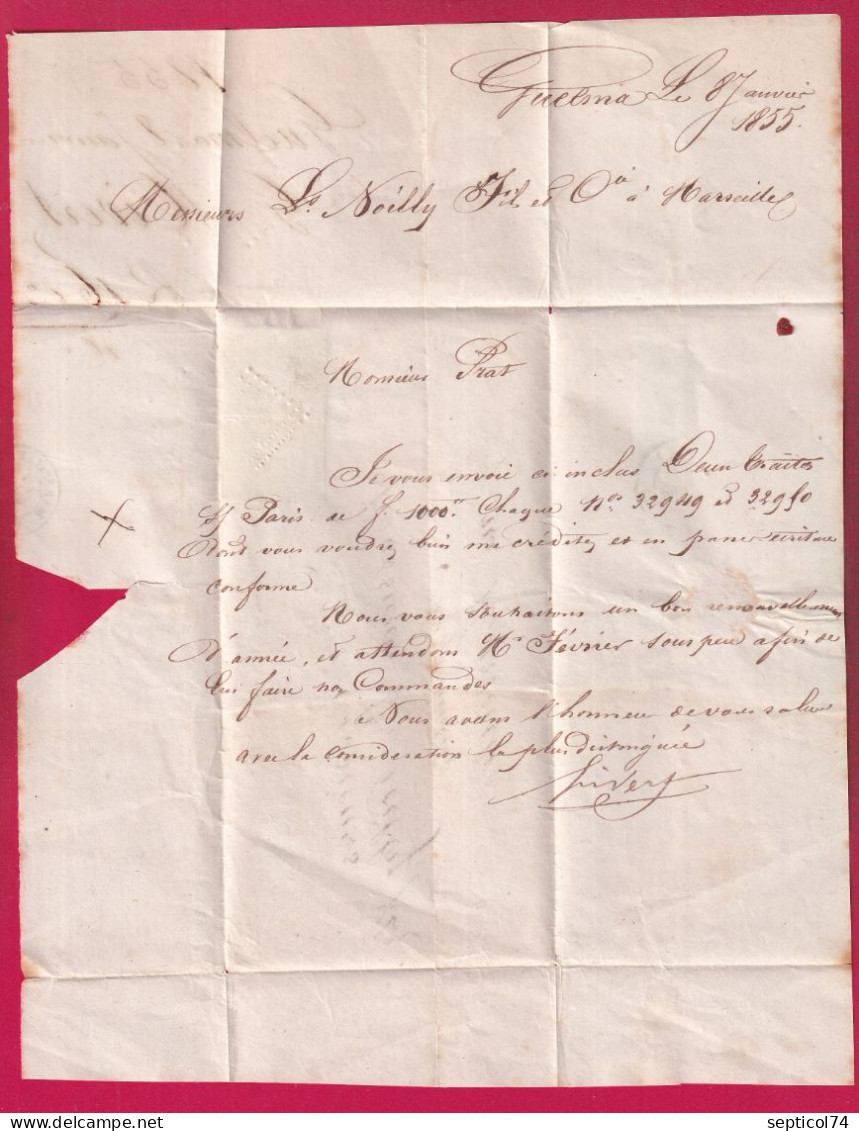 Guelma Le 8 Janvier
1855.
Messieurs Ls Noilly Fils et Cie à Marseille
Monsieur Prat
Je vous envoie ci inclus Deux traites
s/ Paris de f. 1000 Chaque Nos 32949 et 32950
Dont vous voudrez bien me créditer et en passer écriture
conforme
Nous vous souhaitons un bon renouvellement
d'année, et attendons Mr Février sous peu afin de
lui faire nos Commandes
Nous avons l'honneur de vous saluer
avec la Considération la plus distinguée
septicol74